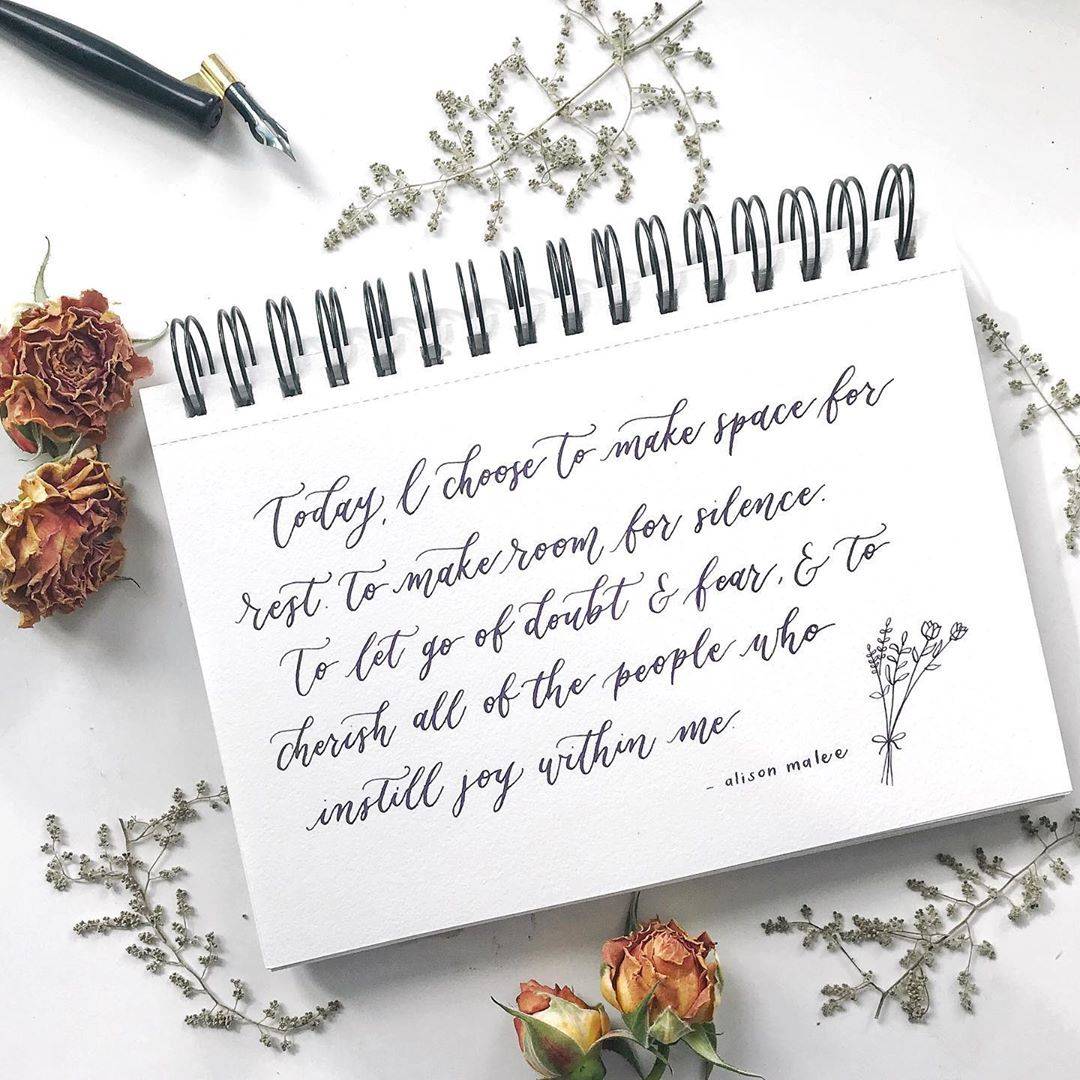 Today, I choose to make space for
rest. To make room for silence.
To let go of doubt & fear, & to
cherish all of the people who
instill joy within me.
- alison malee